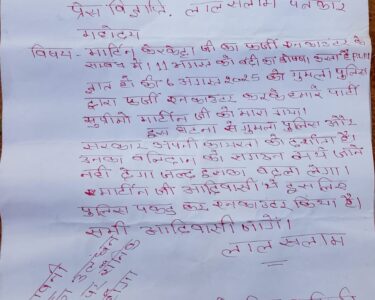 प्रेस विज्ञप्ति, लाल सलाम पत्रकार
महोदय
विषय - मार्टिन केरकेट्टा जी का फर्जी इनकाउंटर के
संबंध में। 11 अगस्त को बंदी का घोषणा
ज्ञात हो की 6 अगस्त 2025 को गुमला पुलिस
द्वारा फर्जी इनकाउंटर करके हमारे पार्टी
सुप्रीमो मार्टीन जी को मारा गया।
इस घटना से गुमला पुलिस और
सरकार अपनी कायरता को दर्शाता है।
उनका बलिदान को संगठन व्यर्थ जाने
नहीं देगा जल्द इसका बदला लेगा।
मार्टीन जी आदिवासी थे इसलिए
पुलिस पकड़ कर इनकाउंटर किया है।
सभी आदिवासी जागो।
लाल सलाम